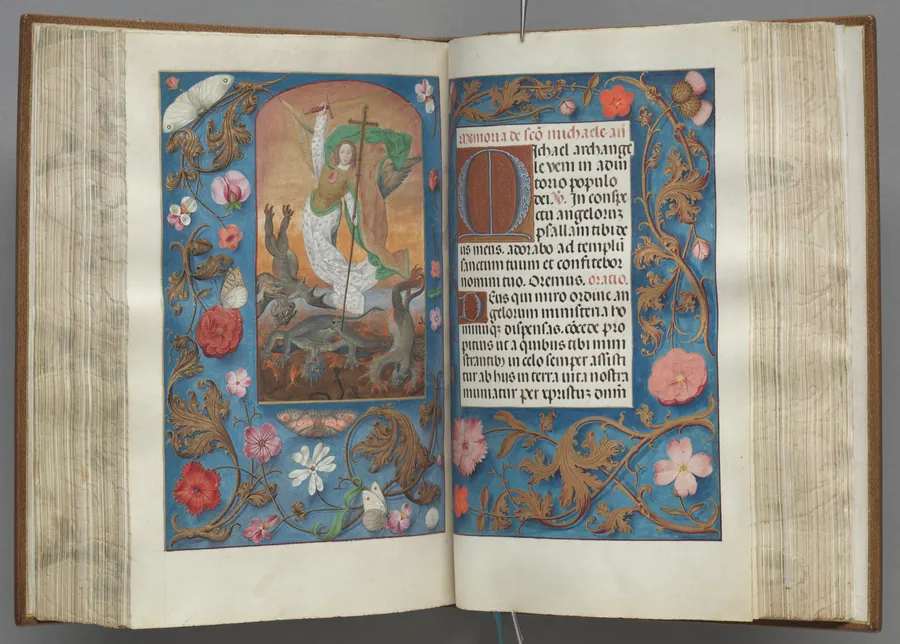 Memoria de scō michaele. añ
Michael archange
le veni in adiu
torio populo
dei. V. In conspe
ctu angelorum
psallam tibi de
us meus. adorabo ad templū
sanctum tuum et confitebor
nomini tuo. Oremus. oratio.
Deus qui miro ordine an
gelorum ministeria ho
minūq; dispensas. cōcede pro
pitius ut a quibus tibi mini
strantibus in celo semper assisti
tur ab hiis in terra vita nostra
muniatur per xpristum dnm̄